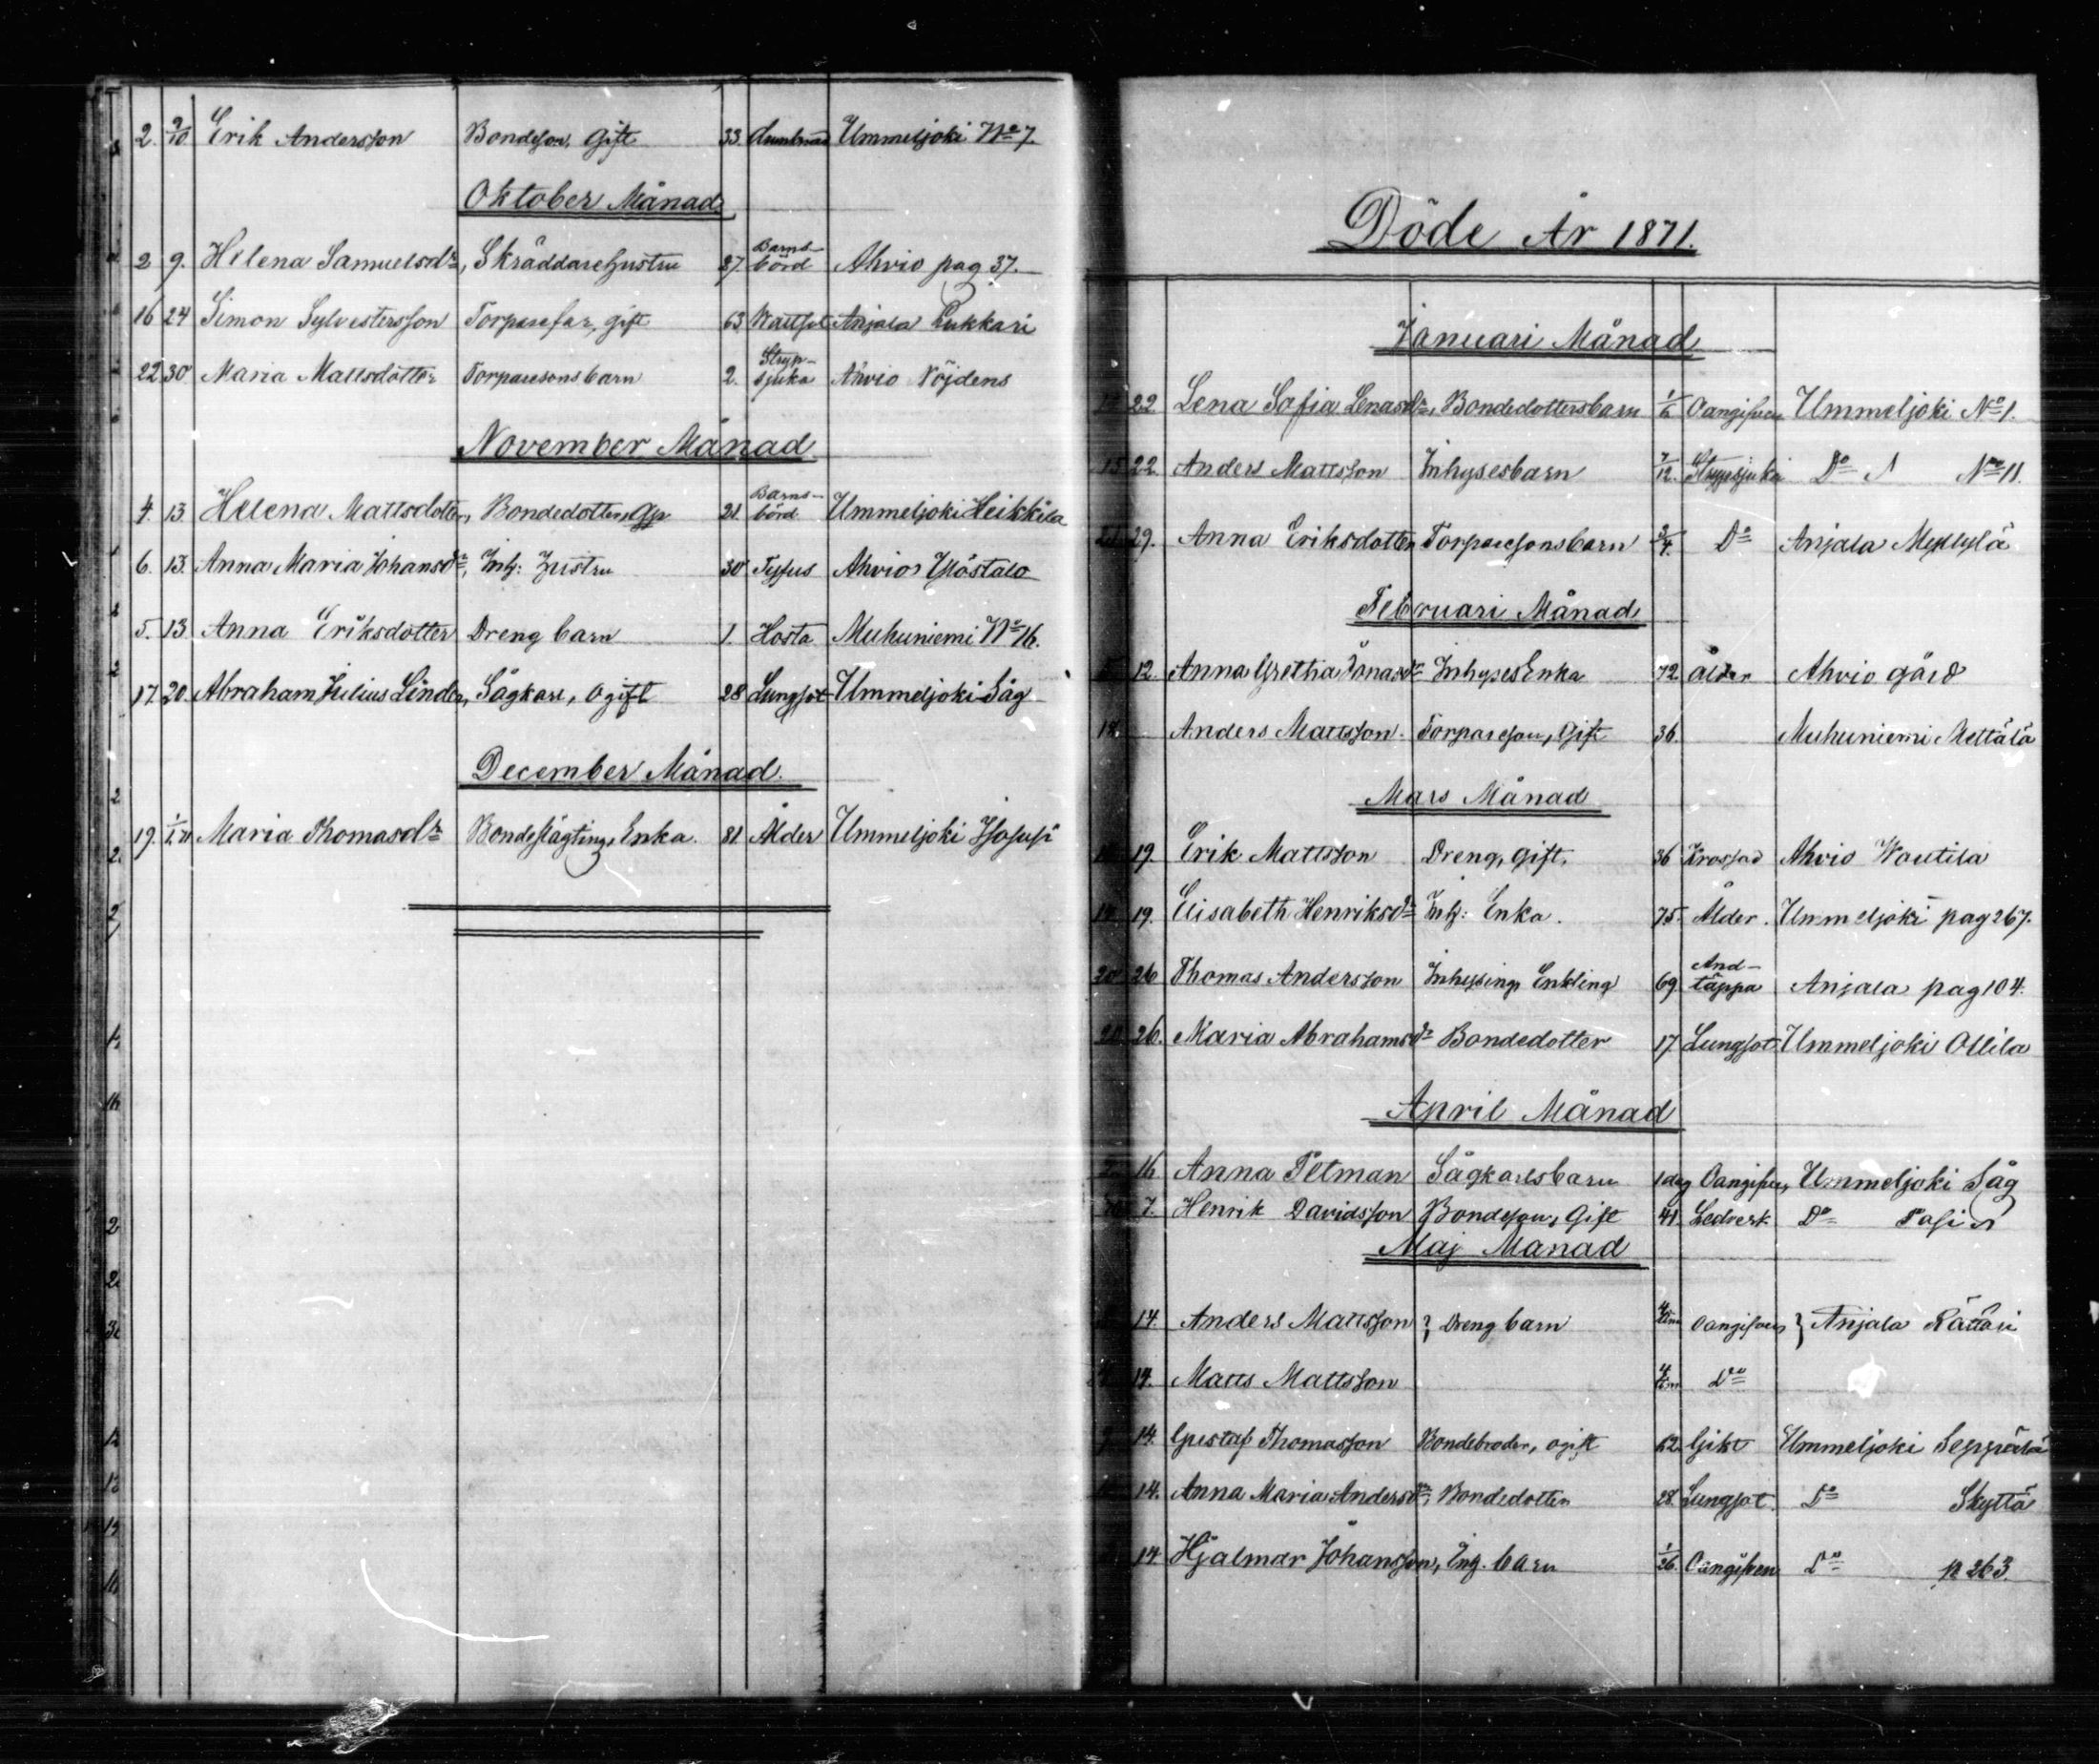 2. 9/10 Erik Andersson Bondeson, Gift 33. Ummeljoki No 7.
Oktober Månad
2 9. Helena Samuelsdr, Skräddarehustru 27. Barnsbörd Ahvio pag 37.
16 24 Simon Sylvestersson Torparefar, gift 63 Wattsot Anjala Lukkari
22 30 Maria Mattsdotter Torparesonsbarn 2. Strypsjuka Ahvio Nöjdens
November Månad
4. 13. Helena Mattsdotter, Bondedotter, 21. Barnsbörd Ummeljoki Heikkila
6. 13. Anna Maria Johansdr, Inh: Hustru 30 Tyfus Ahvio Ylöstalo
5. 13 Anna Eriksdotter Dreng barn 1. Hosta Muhuniemi No 16.
17. 20. Abraham Julius Linder, Sågkarl, Ogift 28 Lungsot Ummeljoki Såg
December Månad.
19. Maria Thomasdr Bondeslägting, Enka. 81 Ålder Ummeljoki
Döde År 1871.
Januari Månad
22 Lena Sofia Lenasdr, Bondedottersbarn 1/6 Oangifven Ummeljoki No 1.
15 22. Anders Mattsson Inhysesbarn 7/12. Strypsjuka Do No 11.
21 29. Anna Eriksdotter Torparesonsbarn 3/4. Do Anjala Myllylä
Februari Månad
12. Anna Grethia Jonasdr Inhyses Enka 72 Ålder Ahvio gård
18. Anders Mattsson. Torpareson, Gift 36. Muhuniemi Mettälä
Mars Månad
19. Erik Mattsson Dreng, Gift. 36 Krossad Ahvio Woutila
19. Elisabeth Henriksdr Inh: Enka. 75. Ålder. Ummeljoki pag 267.
20 26 Thomas Andersson Inhysing, Enkling 69 Andtäppa Anjala pag 104.
20 26. Maria Abrahamsdr Bondedotter 17 Lungsot Ummeljoki Ollila
April Månad
16 Anna Tiltman Sågkarlsbarn 1 dag Oangifven, Ummeljoki Såg
7. Henrik Davidsson Bondeson, Gift 41 Ledverk Do Pasi
Maj Månad
14. Anders Mattsson } Dreng barn 4 tim Oangifven } Anjala Rättäri
14. Matts Mattsson 4 tim Do
14. Gustaf Thomasson Bondebroder, ogift 62 Gikt Ummeljoki Seppälä
14. Anna Maria Andersdr, Bondedotter 28. Lungsot. Do Skyttä
14 Hjalmar Johansson, Inh. barn 1/26. Oangifven Do p 263.